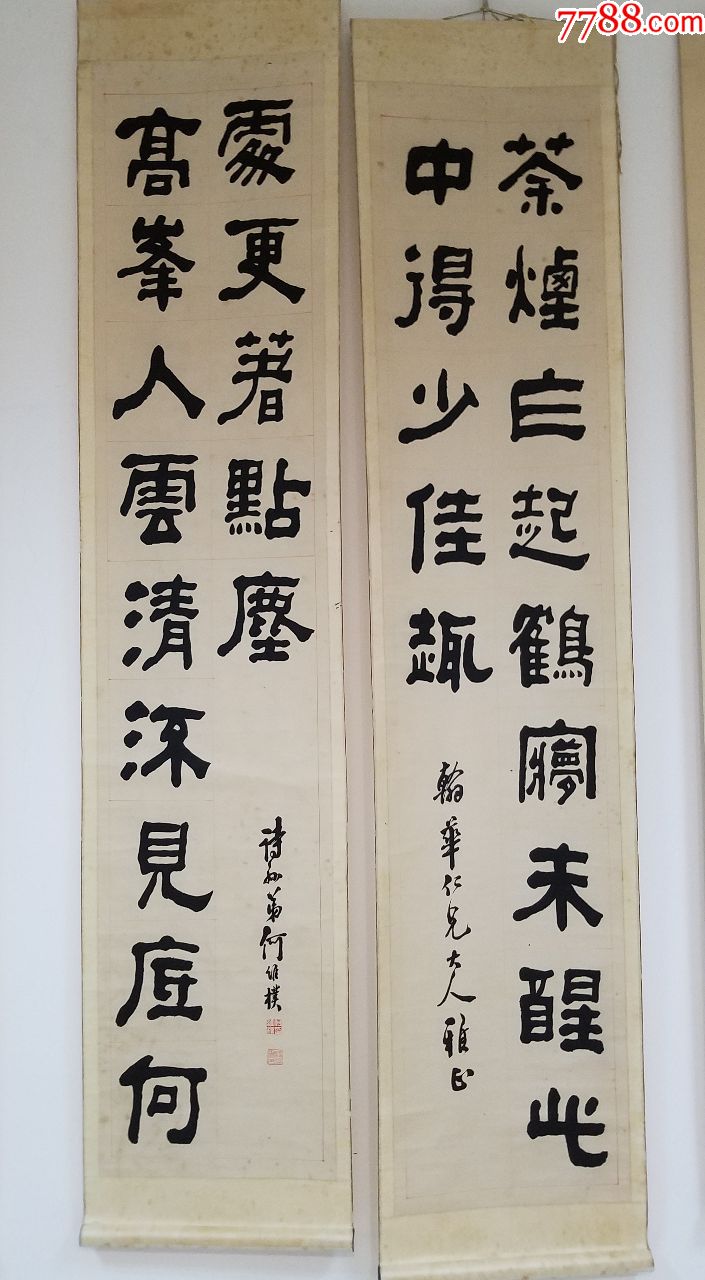 7788.com
茶煙乍起鶴夢未醒此
中得少佳趣
翰華仁兄大人雅正
高峯入雲清流見底何
處更著點塵
詩孫弟何維樸